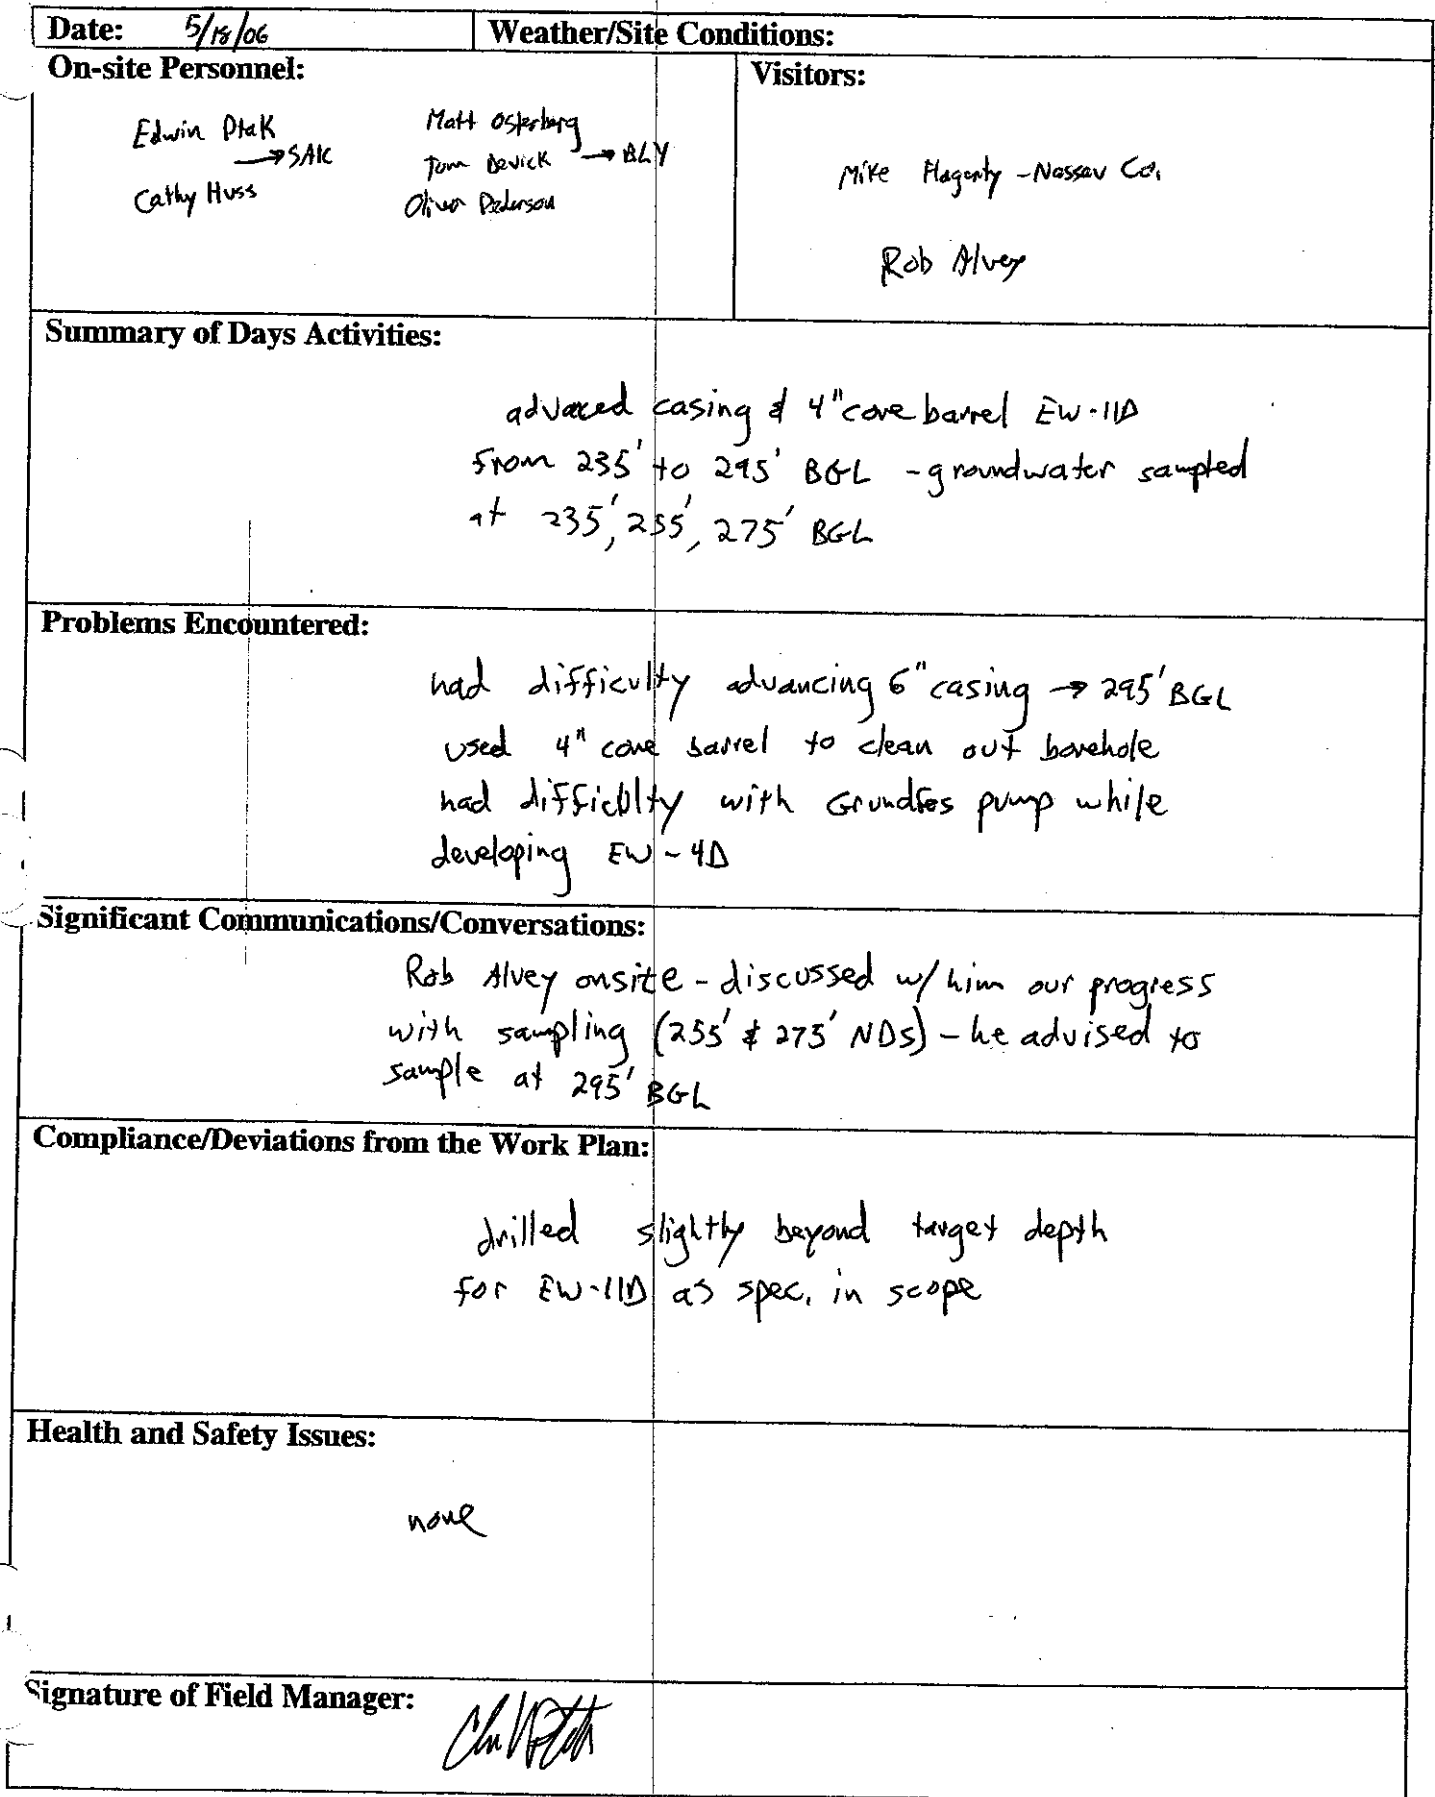 Date: 5/18/06 Weather/Site Conditions:
On-site Personnel: Visitors:
Edwin Ptak
→ SAIC
Cathy Huss
Matt Osterberg
Tom Devick → BLY
Oliver Pederson
Mike Flaganty - Nassau Co.
Rob Alvey
Summary of Days Activities:
advaced casing & 4" core barrel EW-11D
from 235' to 295' BGL - groundwater sampled
at 235', 255', 275' BGL
Problems Encountered:
had difficulty advancing 6" casing → 295' BGL
used 4" core barrel to clean out borehole
had difficulty with Grundfos pump while
developing EW-4D
Significant Communications/Conversations:
Rob Alvey onsite - discussed w/ him our progress
with sampling (255' & 275' NDs) - he advised to
sample at 295' BGL
Compliance/Deviations from the Work Plan:
drilled slightly beyond target depth
for EW-11D as spec. in scope
Health and Safety Issues:
none
Signature of Field Manager: